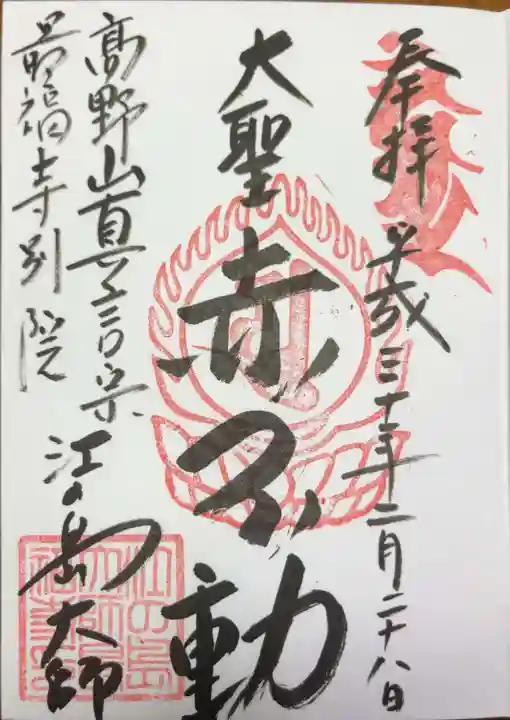 奉拝 平成三十年十二月二十八日
大聖赤不動
高野山真言宗 江の島大師
最福寺別院